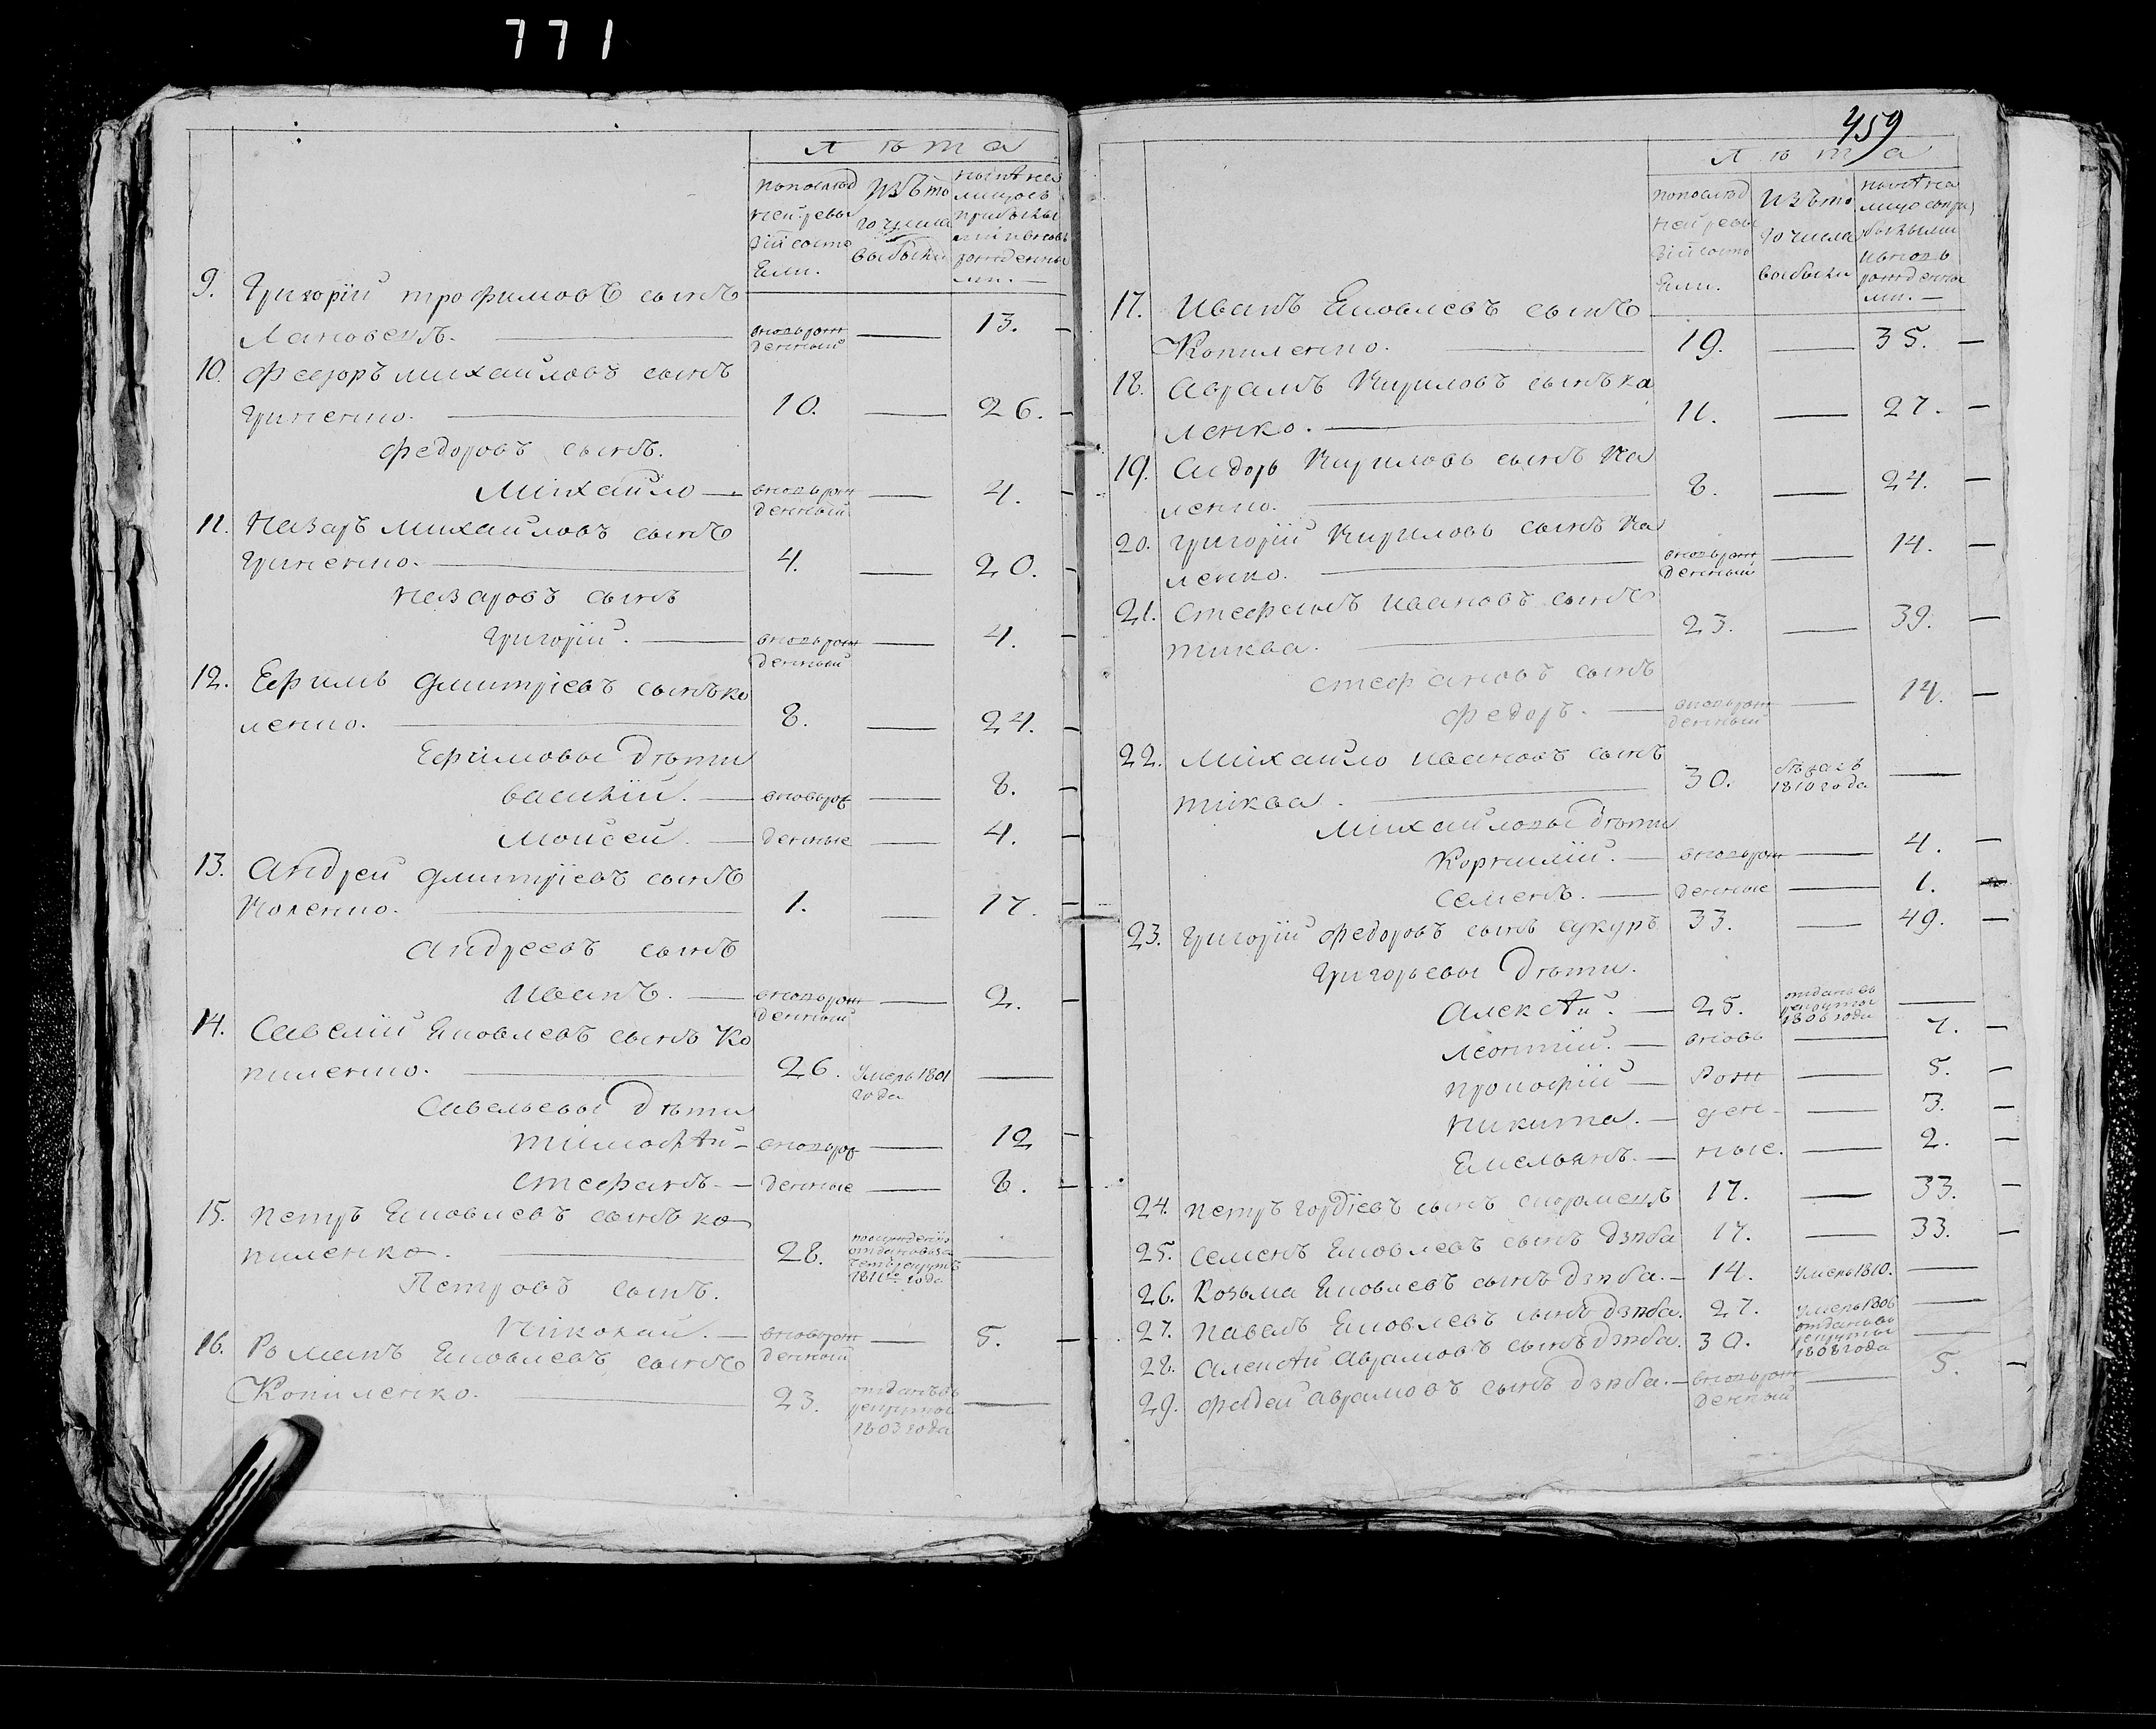 771
л ѣ т а
по послѣд
ней реви
зіи состо
яли.
Изъ то
го числа
выбыли
ныпѣ на
лицо съ
прибылы
ми и вновь
рожденны
ми. —
9. Григорій трофимовъ сынъ
Лановенъ. — вновь рож
денный — 13. —
10. Федоръ михайловъ сынъ
Гриненко. — 10. — 26. —
Федоровъ сынъ.
Михайло — вновь рож
денный — 4. —
11. Назаръ михайловъ сынъ
Гриненко. — 4. — 20. —
Назаровъ сынъ
Григорій. — вновь рож
денный — 4. —
12. Ефимъ Дмитріевъ сынъ ко
ленко. — 8. — 24. —
Ефимовы Дѣти
василій. — вновь рож — 8. —
Моисей. — денные — 4. —
13. Андрей Дмитріевъ сынъ
Коленко. — 1. — 17. —
Андреевъ сынъ
Иванъ. — вновь рож
денный — 2. —
14. Савелій Яковлевъ сынъ Ко
пиленко. — 26. Умеръ 1801
года —
Савельевы Дѣти
тимофѣй — вновь рож — 12 —
стефанъ — денные — 8. —
15. Петръ Яковлевъ сынъ ко
пиленко. — 28. 1811го года —
Петровъ сынъ.
Николай. — вновь рож
денный — 5. —
16. Романъ Яковлевъ сынъ
Копиленко. — 23. отданъ въ
рекруты
1803 года —
459
л ѣ т а
по послѣд
ней реви
зіи состо
яли.
Изъ то
го числа
выбыли
ныпѣ на
лицо съ при
былыми
и вновь
рожденны
ми. —
17. Иванъ Яковлевъ сынъ
Копиленко. — 19. — 35. —
18. Аврамъ Кириловъ сынъ ка
ленко. — 11. — 27. —
19. Сидоръ Кириловъ сынъ Ка
ленко. — 8. — 24. —
20. Григорій Кириловъ сынъ Ка
ленко. — вновь рож
денный — 14. —
21. Стефанъ Ивановъ сынъ
тиква. — 23. — 39. —
стефановъ сынъ
Федоръ. — вновь рож
денный — 14. —
22. Михайло ивановъ сынъ
тиква. — 30. бѣжалъ
1810 года —
Михайловы Дѣти
Корнилій. — вновь рож — 4. —
Семенъ. — денные — 1. —
23. Григорій Федоровъ сынъ сукуръ 33. — 49. —
Григорьевы Дѣти.
Алексѣй. — 25. отданъ въ
рекруты
1806 года —
леонтій. — вновь — 7. —
прокофій — Рож — 5. —
Никита. — ден — 3. —
Емельянъ. — ные. — 2. —
24. Петръ гордіевъ сынъ 17. — 33. —
25. Семенъ Яковлевъ сынъ Дзюба 17. — 33. —
26. Козьма Яковлевъ сынъ дзюба. — 14. Умеръ 1810. —
27. Павелъ Яковлевъ сынъ дзюба. 27. Умеръ 1806 —
28. Алексѣй Аврамовъ сынъ дзюба. 30. отданъ въ
рекруты
1808 года —
29. Фадей Аврамовъ сынъ Дзюба. — вновь рож
денный — 5. —